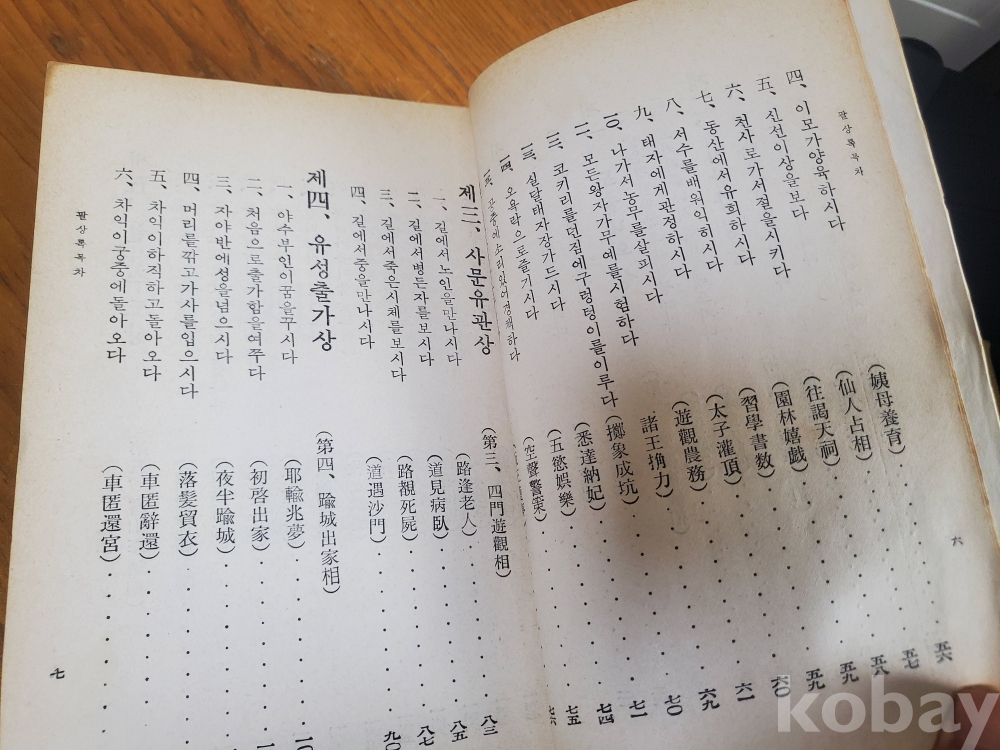 팔상록목차
四、이모가양육하시다 (姨母養育)
五六
五、신선이상을보다 (仙人占相)
五七
六、천사로가서절을시키다 (往謁天祠)
五八
七、동산에서유희하시다 (園林嬉戲)
五九
八、서수를배워익히시다 (習學書數)
五九
九、태자에게관정하시다 (太子灌頂)
六〇
一〇、나가서농무를살피시다 (遊觀農務)
六一
一一、모든왕자가무예를시험하다 (諸王捔力)
六九
一二、코키리를던짐에구렁텅이를이루다 (擲象成坑)
七〇
一三、실달태자장가드시다 (悉達納妃)
七一
一四、오욕락으로즐기시다 (五慾娛樂)
七四
一五、공중에소리있어경책하다 (空聲警策)
七五
六
제三、사문유관상 (第三、四門遊觀相)
一、길에서노인을만나시다 (路逢老人)
八三
二、길에서병든자를보시다 (道見病臥)
八五
三、길에서죽은시체를보시다 (路覩死屍)
八七
四、길에서중을만나시다 (道遇沙門)
九〇
제四、유성출가상 (第四、踰城出家相)
一、야수부인이꿈을꾸시다 (耶輸兆夢)
二、처음으로출가함을여쭈다 (初啓出家)
三、자야반에성을넘으시다 (夜半踰城)
四、머리를깎고가사를입으시다 (落髮貿衣)
五、차익이하직하고돌아오다 (車匿辭還)
六、차익이궁중에돌아오다 (車匿還宮)
팔상록목차
七
kobay